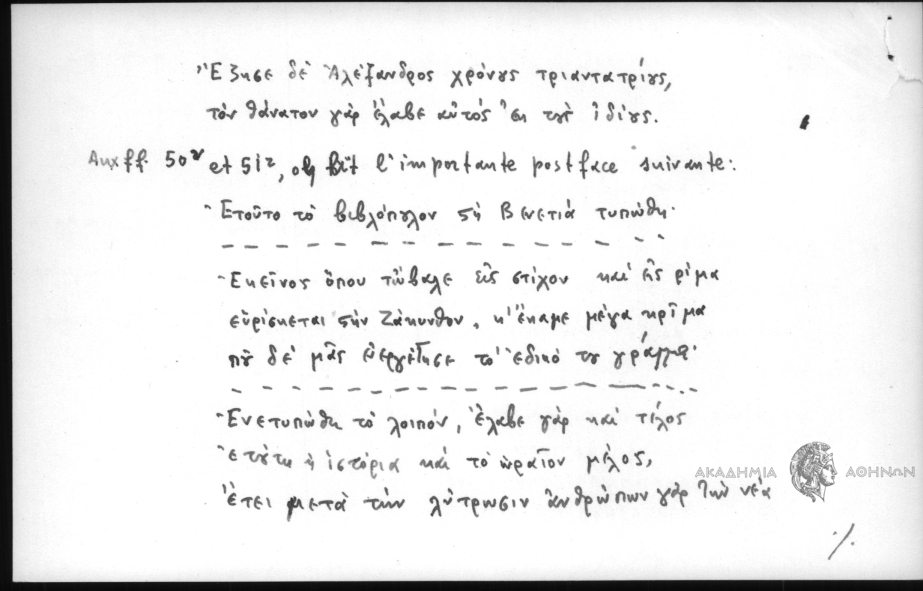 Ἔζησε δὲ Ἀλέξανδρος χρόνους τριαντατρίους,
τὸν θάνατον γὰρ ἔλαβε αὐτὸς ἐκ τοὺς ἰδίους.
Aux ff. 50v et 51r, on lit l'importante postface suivante:
Ἐτοῦτο τὸ βιβλόπουλον στὴ Βενετιὰ τυπώθη·
Ἐκεῖνος ὅπου τὤβαλε εἰς στίχον καὶ εἰς ρίμα
εὑρίσκεται στὴν Ζάκυνθον, κ' ἔκαμε μέγα κρῖμα
ποῦ δὲ μᾶς εὐεργέτησε τὸ ἐδικό του γράμμα·
Ἐνετυπώθη τὸ λοιπόν, ἔλαβε γὰρ καὶ τέλος
ἐτούτη ἡ ἱστόρια καὶ τὸ ὡραῖον μέλος,
ἔτει μετὰ τὴν λύτρωσιν ἀνθρώπων γὰρ τὴν νέα
ΑΚΑΔΗΜΙΑ ΑΘΗΝΩΝ
./.